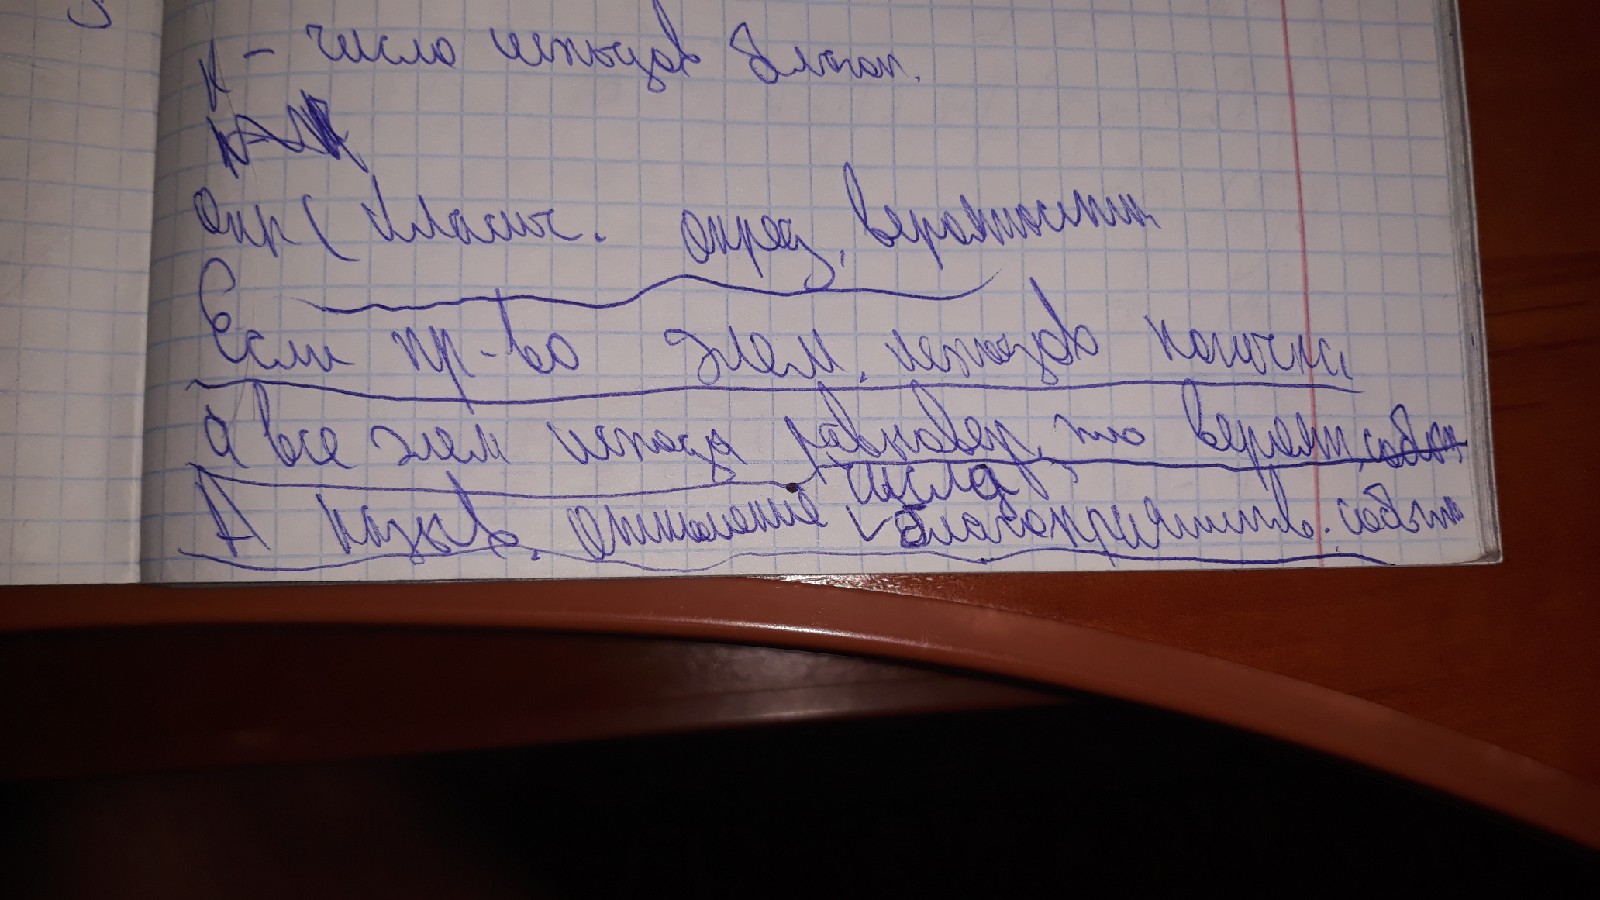 К - число исходов благоп.
Опр ( Классич. опред. вероятности
Если пр-во элем. исходов конечно,
а все элем исходы равновер, то вероятн. событ
А назыв. отношение числа благоприятств. событ